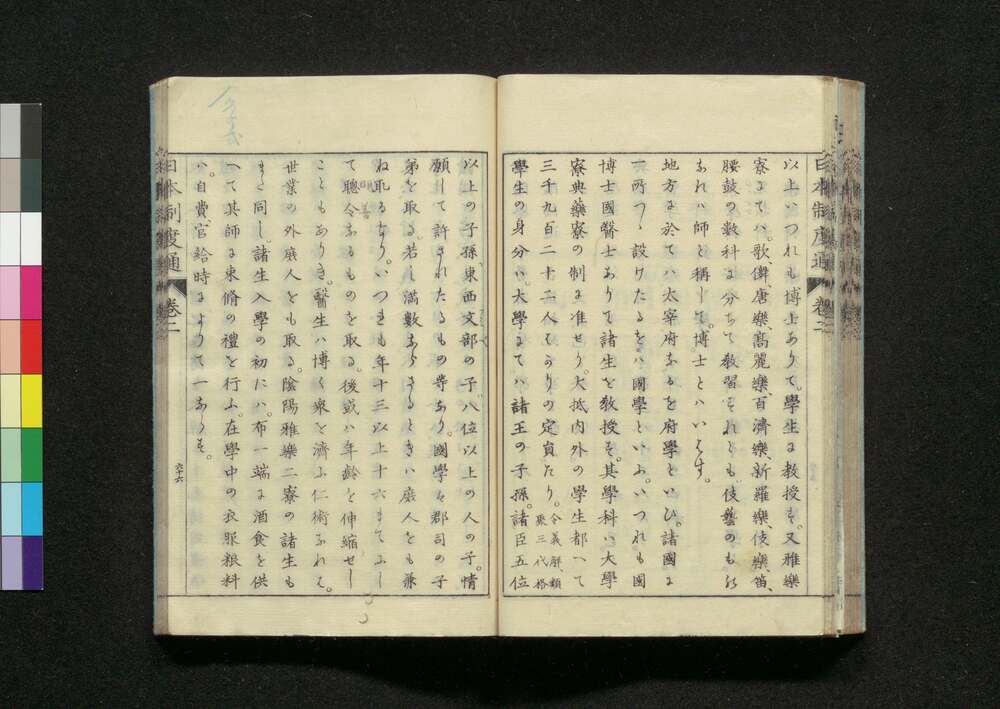 日本制度通 卷二
以上いつれも博士ありて、學生に教授す。又雅樂
寮にてハ、歌、儛、唐樂、高麗樂、百濟樂、新羅樂、伎樂、笛、
腰鼓の数科に分ちて教習すれとも、伎藝のものな
れハ師と称して、博士とハいはす。
地方に於てハ太宰府なるを府學といひ、諸國に
一所つゝ設けたるをハ國學といふ。いつれも國
博士國醫士ありて諸生を教授す。其學科ハ大學
寮典藥寮の制に准せり。大抵内外の學生都へて
三千九百二十二人そこりの定員たり。令義解、類
聚三代格
學生の身分ハ、大學にてハ諸王の子孫、諸臣五位
以上の子孫、東西文部の子、八位以上の人の子、情
願して許されたるもの等なり。國學ハ郡司の子
弟を取る。若し満数ならさるときハ庶人をも兼
ね取るなり。いつれも年十三以上十六までにし
て聰令なるものを取る。後或ハ年齢を伸縮せし
聰慧
こともありき。醫生ハ博く衆を濟ふ仁術なれは、
世業の外庶人をも取る。陰陽雅樂二寮の諸生も
また同し。諸生入學の初にハ、布一端に酒食を供
へて其師に束脩の禮を行ふ。在學中の衣服粮料
ハ、自費、官給時によりて一ならす。
日本制度通 卷二
六十六